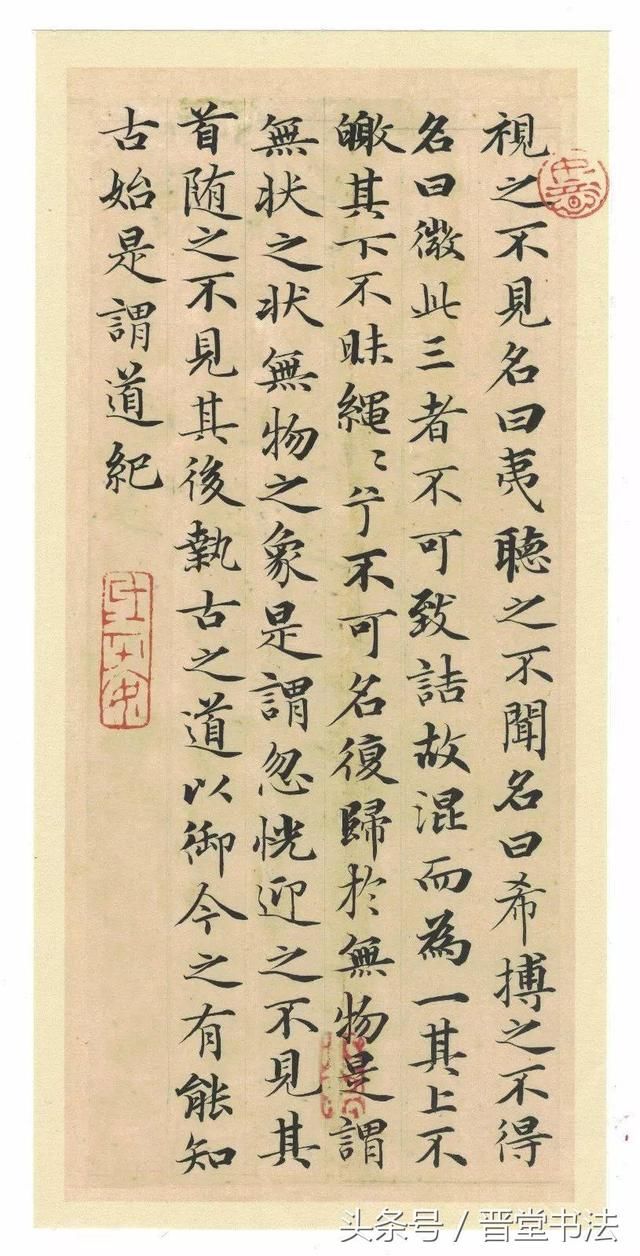 視之不見名曰夷聴之不聞名曰希搏之不得
名曰微此三者不可致詰故混而為一其上不
皦其下不昧繩〻兮不可名復歸於無物是謂
無状之状無物之象是謂忽恍迎之不見其
首随之不見其後執古之道以御今之有能知
古始是謂道紀
头条号 / 晋堂书法